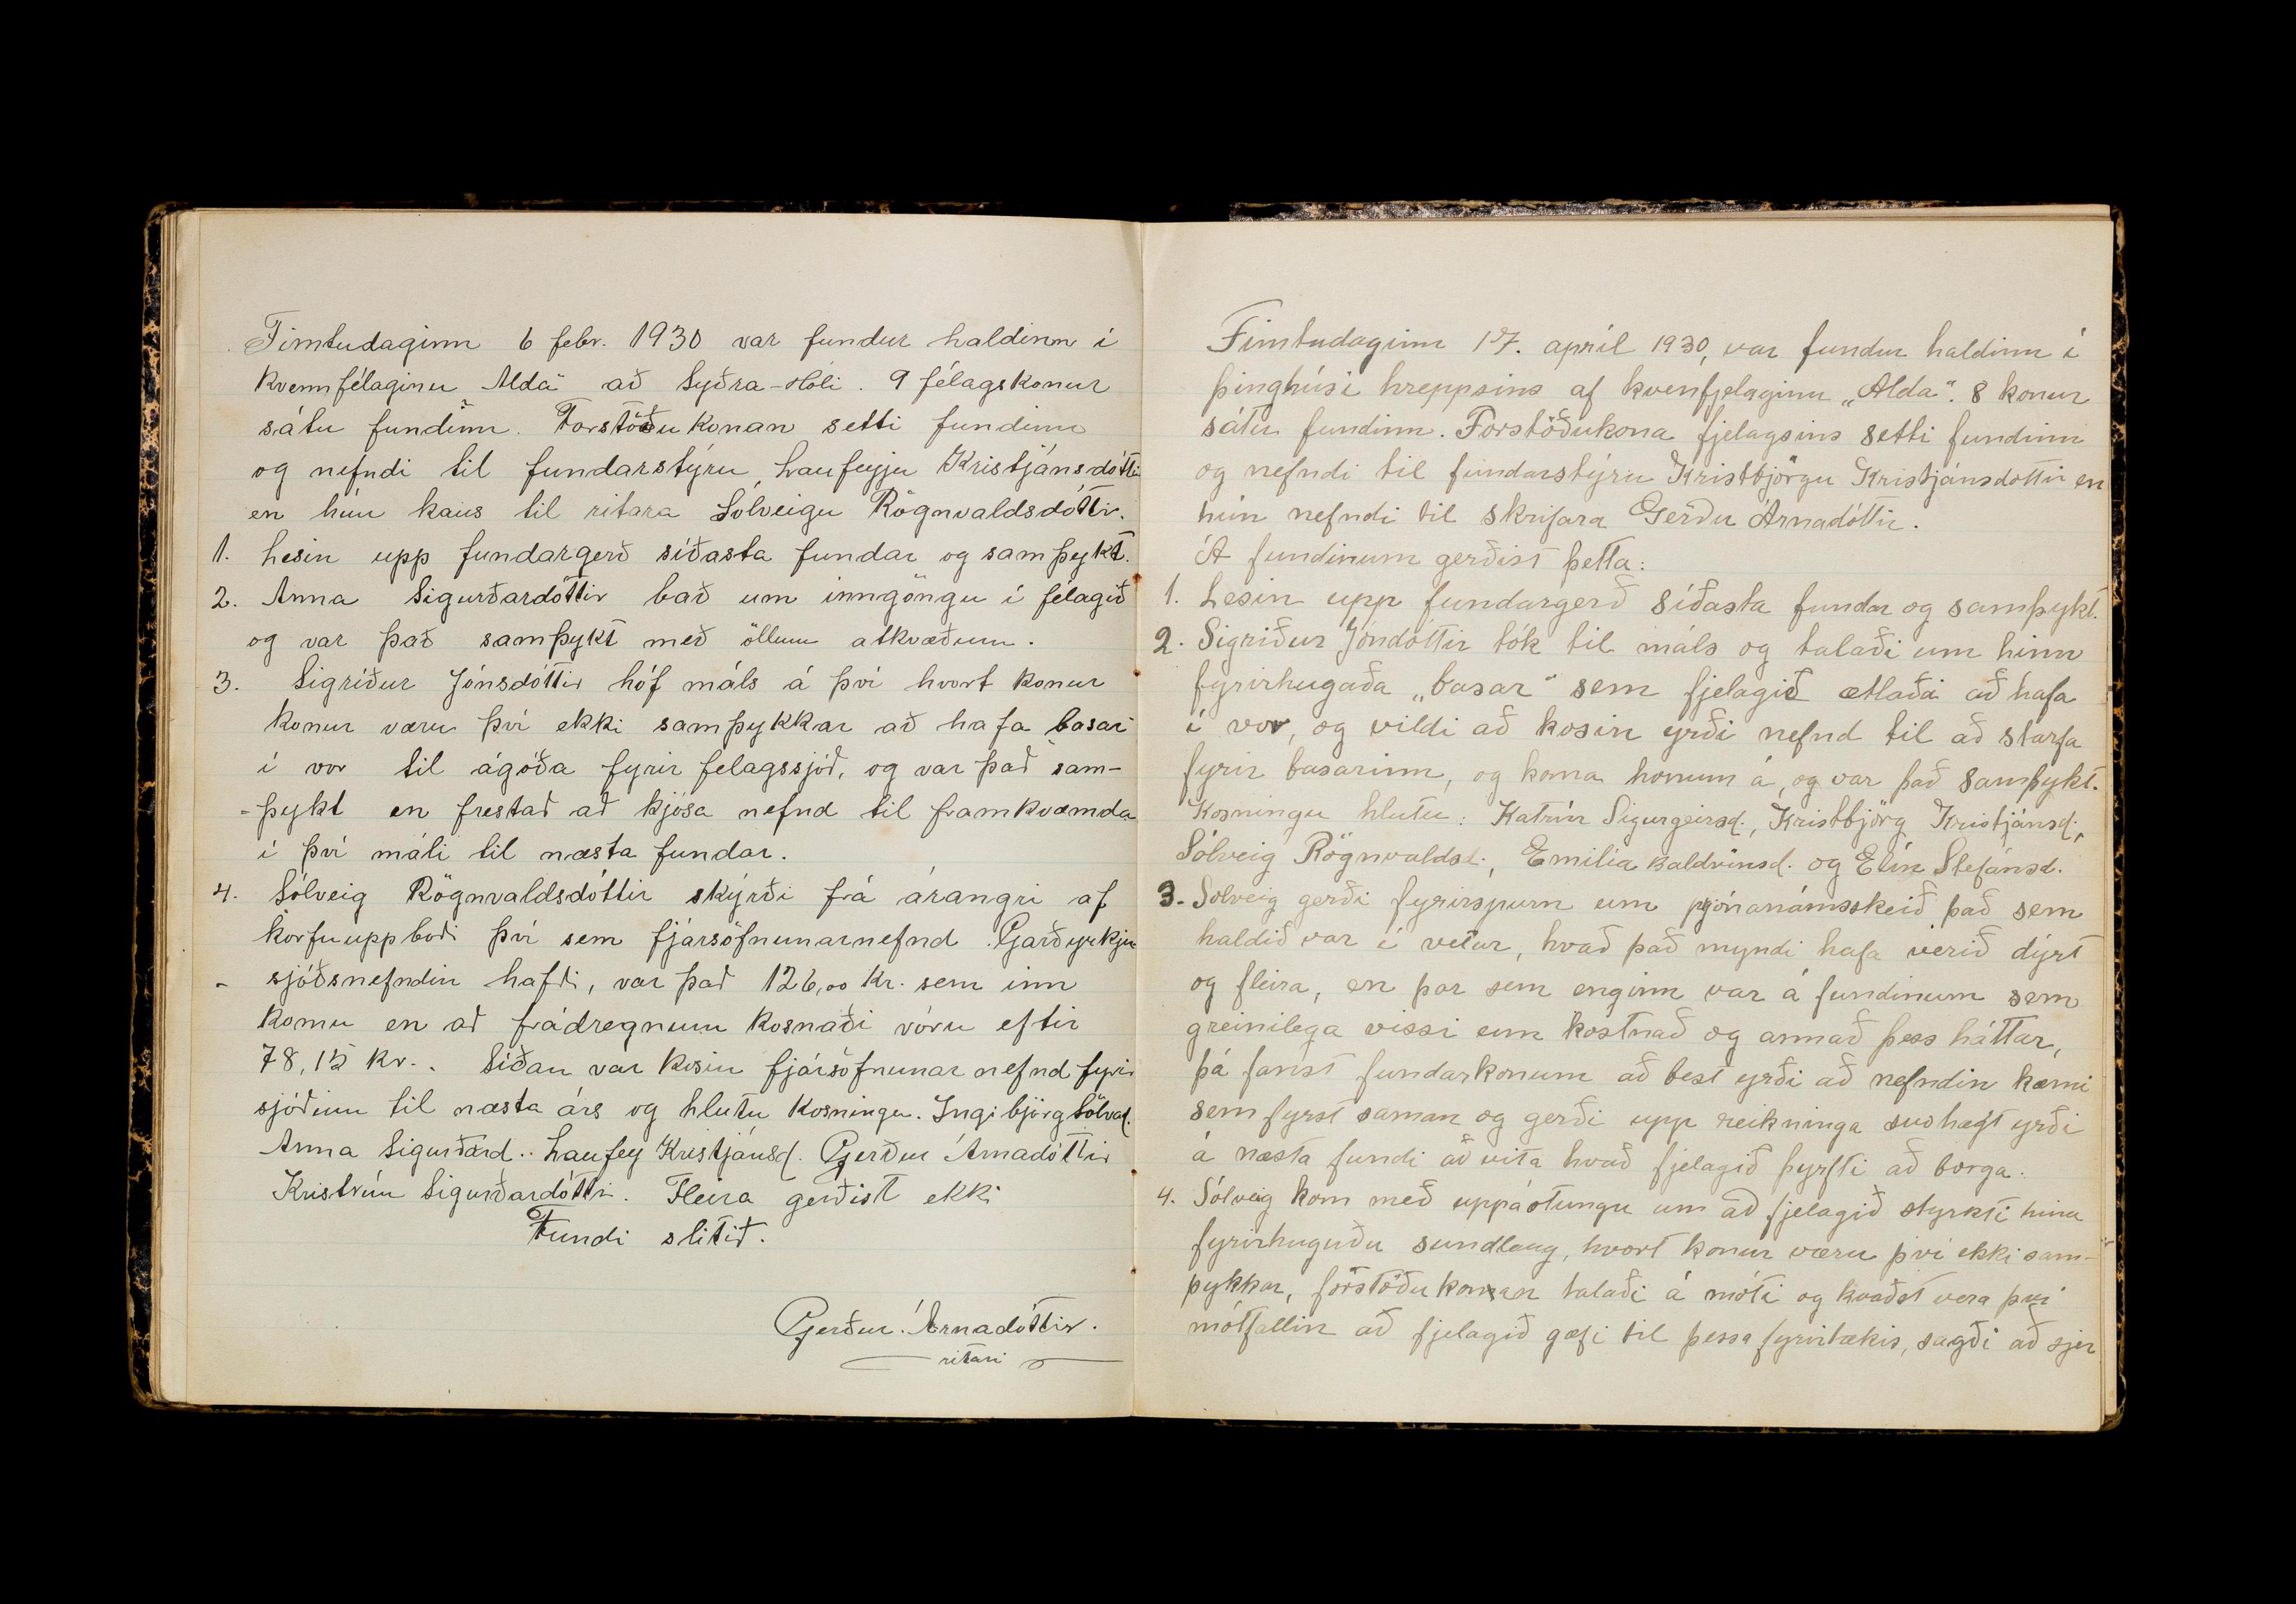 Fimtudaginn 6 febr. 1930 var fundur haldinn í
kvennfélaginu Alda" að Syðra-Hóli. 9 félagskonur
sátu fundinn. Forstöðukonan setti fundinn
og nefndi til fundarstýru, Laufeyju Kristjánsdóttir
en hún kaus til ritara Sólveigu Rögnvaldsdóttir.
1. Lesin upp fundargerð síðasta fundar og samþykt.
2. Anna Sigurðardóttir bað um inngöngu í félagið
og var það samþykt með öllum atkvæðum.
3. Sigríður Jónsdóttir hóf máls á því hvort konur
konur væru því ekki samþykkar að hafa basar
í vor til ágóða fyrir felagssjóð, og var það sam-
-þykt en frestað að kjósa nefnd til framkvæmda
í því máli til næsta fundar.
4. Sólveig Rögnvaldsdóttir skýrði frá árangri af
körfuuppboði því sem fjársöfnunarnefnd Garðyrkju
- sjóðsnefndin hafði, var það 126,00 kr. sem inn
komu en að frádregnum kosnaði vóru eftir
78,15 kr.. Síðan var kosin fjársöfnunarnefnd fyrir
sjóðinn til næsta árs og hlutu kosningu. Ingibjörg Sölvad.
Anna Sigurðard.. Laufey Kristjánsd. Gerður Árnadóttir
Kristrún Sigurðardóttir. Fleira gerðist ekki
Fundi slitið.
Gerður Árnadóttir.
ritari
Fimtudaginn 17. apríl 1930, var fundur haldinn í
þinghúsi hreppsins af kvenfjelaginu „Alda". 8 konur
sátu fundinn. Forstöðukona fjelagsins setti fundinn
og nefndi til fundarstýru Kristbjörgu Kristjánsdottir en
hún nefndi til skrifara Gerðu Árnadóttir.
Á fundinum gerðist þetta:
1. Lesin upp fundargerð síðasta fundar og samþykt.
2. Sigriður Jóndóttir tók til máls og talaði um hinn
fyrirhugaða „basar" sem fjelagið ætlaði að hafa
í vor, og vildi að kosin yrði nefnd til að starfa
fyrir basarinn, og koma honum á, og var það samþykt.
Kosningu hlutu: Katrín Sigurgeirsd., Kristbjörg Kristjánsd.,
Sólveig Rögnvaldsd., Emilía Baldvinsd. og Elín Stefánsd.
3. Sólveig gerði fyrirspurn um prjónanámsskeið það sem
haldið var í vetur, hvað það myndi hafa verið dýrt
og fleira, en þar sem enginn var á fundinum sem
greinilega vissi um kostnað og annað þess háttar,
þá fanst fundarkonum að best yrði að nefndin kæmi
sem fyrst saman og gerði upp reikninga svo hægt yrði
á næsta fundi að vita hvað fjelagið þyrfti að borga.
4. Sólveig kom með uppástungu um að fjelagið styrkti hina
fyrirhuguðu sundlaug, hvort konur væru því ekki sam-
þykkar, forstöðukonan talaði á móti og kvaðst vera því
mótfallin að fjelagið gæfi til þessa fyrirtækis, sagði að sjer